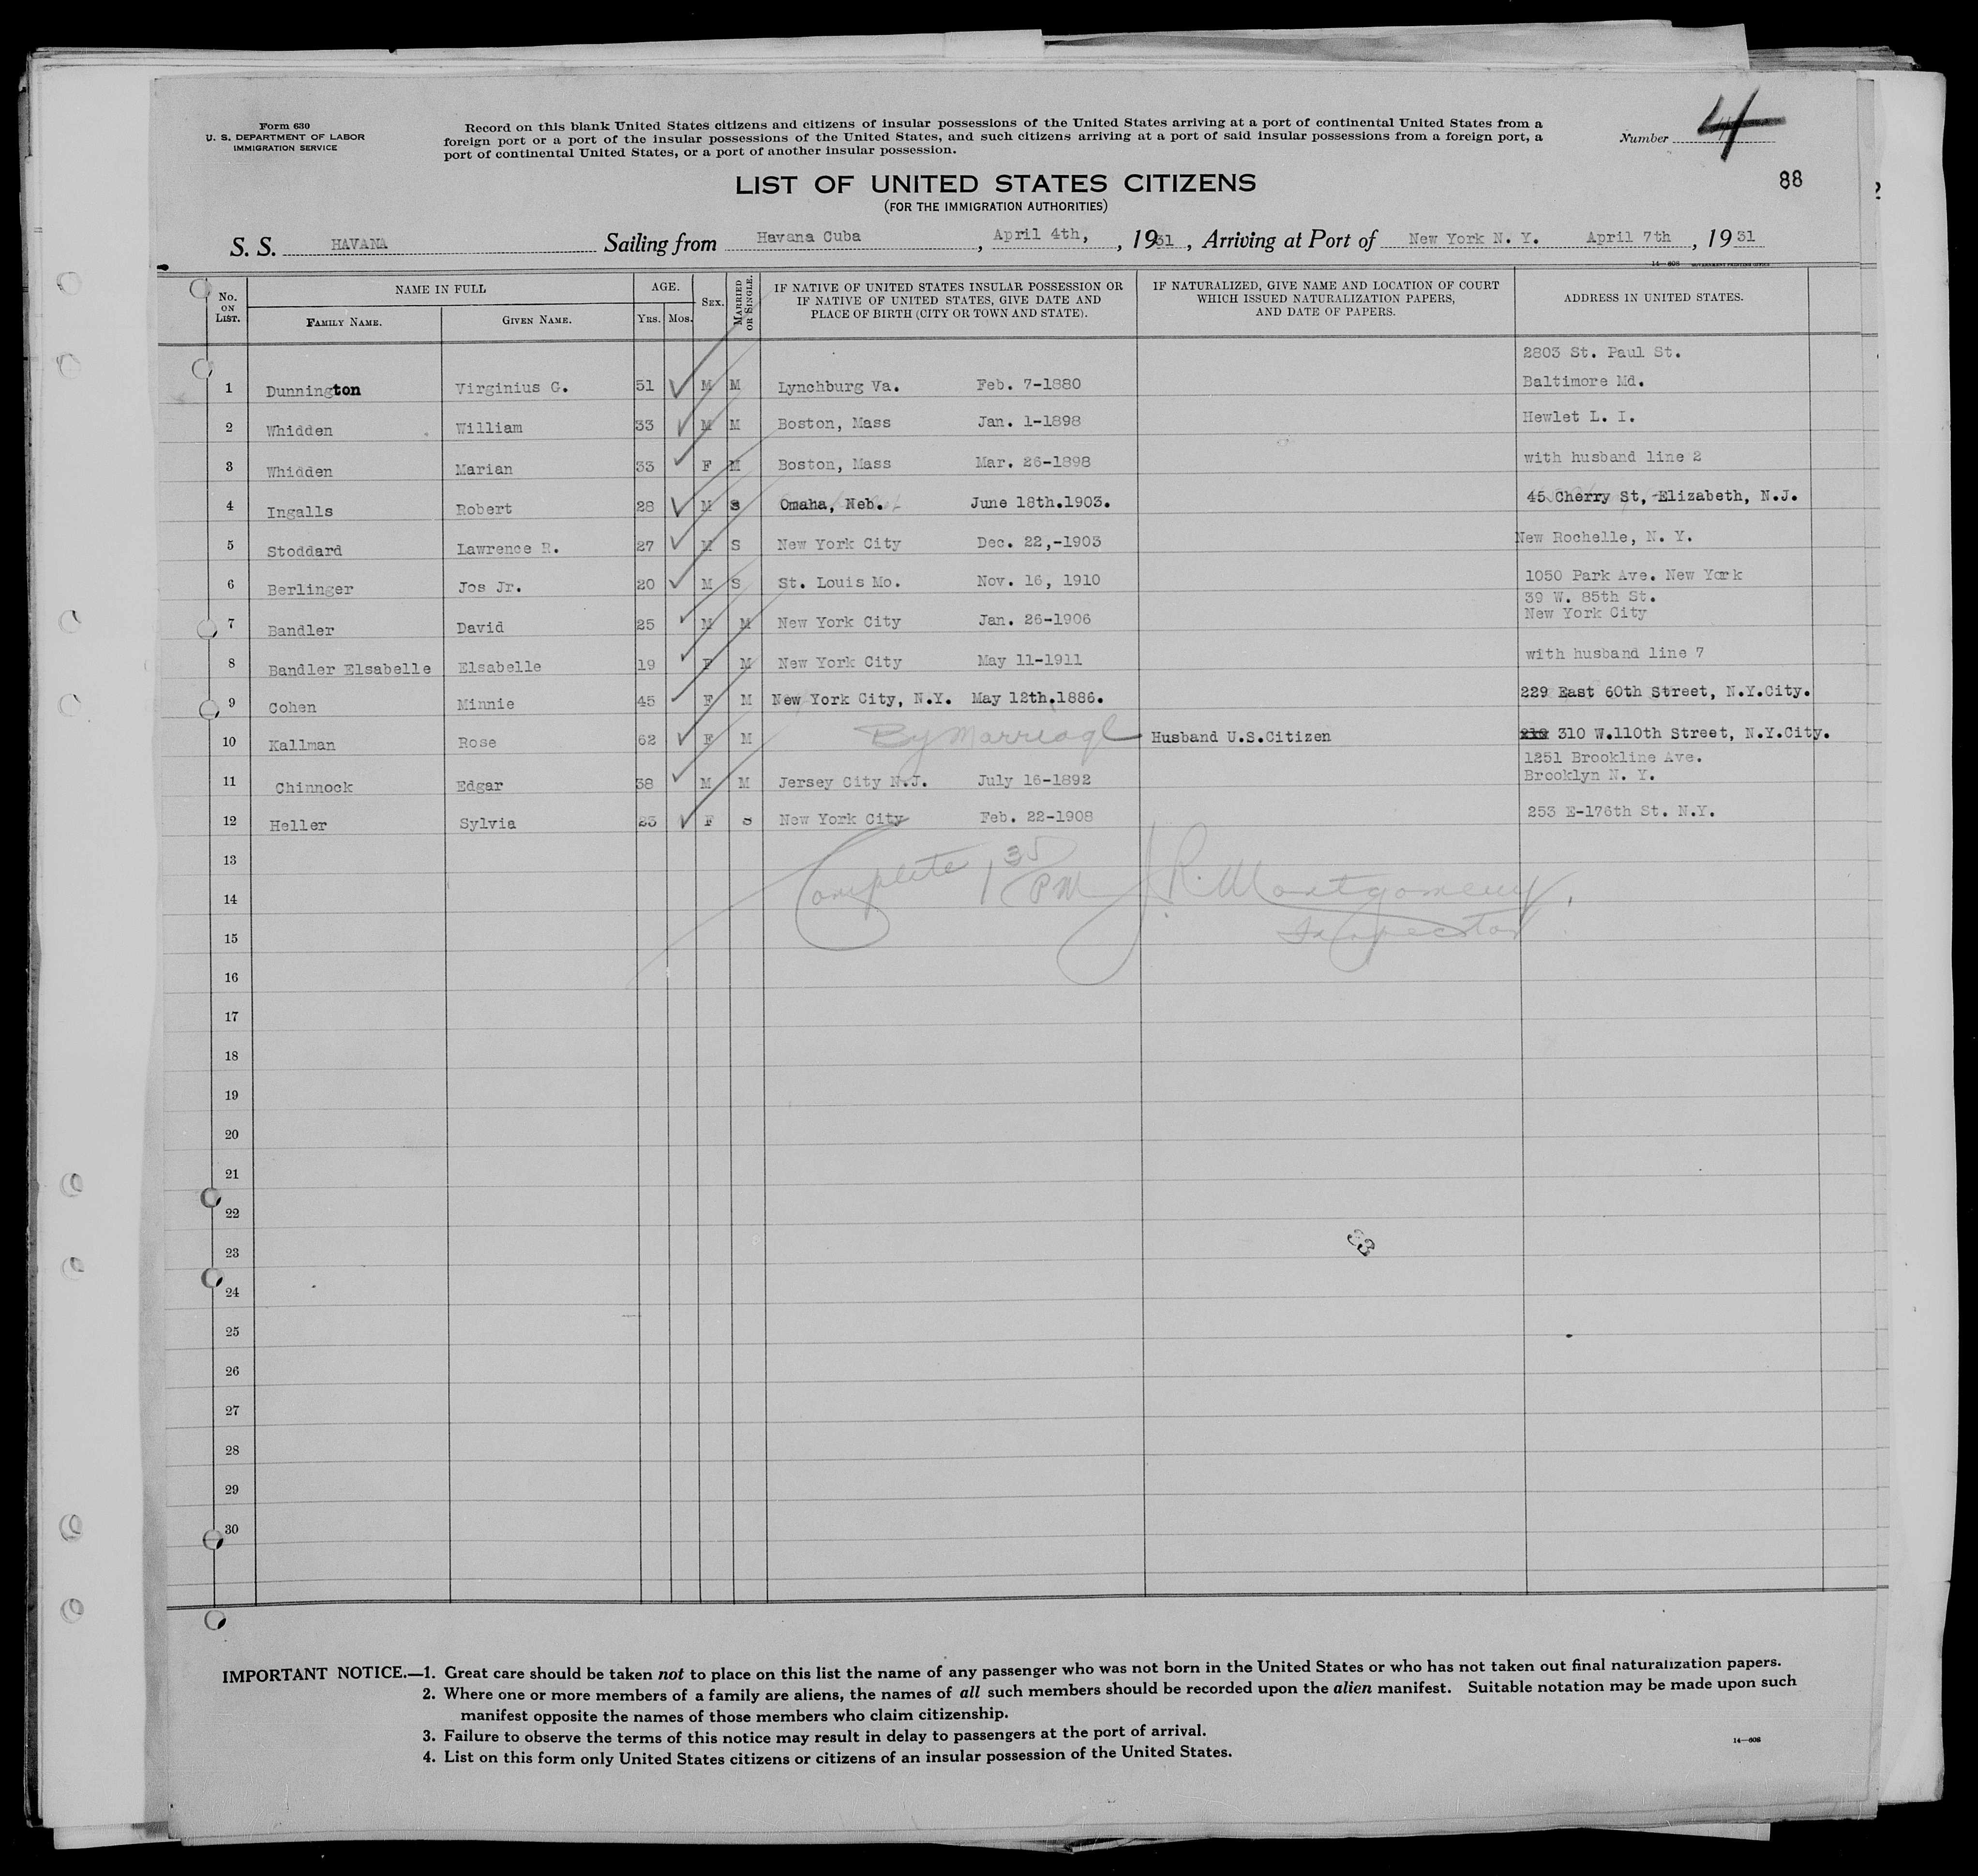 Form 630
U. S. DEPARTMENT OF LABOR
IMMIGRATION SERVICE
Record on this blank United States citizens and citizens of insular possessions of the United States arriving at a port of continental United States from a
foreign port or a port of the insular possessions of the United States, and such citizens arriving at a port of said insular possessions from a foreign port, a
port of continental United States, or a port of another insular possession.
Number 4
88
LIST OF UNITED STATES CITIZENS
(FOR THE IMMIGRATION AUTHORITIES)
S. S. HAVANA Sailing from Havana Cuba, April 4th, , 1931, Arriving at Port of New York N. Y. April 7th, 1931
14—608 GOVERNMENT PRINTING OFFICE
No. ON LIST. NAME IN FULL AGE. SEX. MARRIED OR SINGLE. IF NATIVE OF UNITED STATES INSULAR POSSESSION OR IF NATIVE OF UNITED STATES, GIVE DATE AND PLACE OF BIRTH (CITY OR TOWN AND STATE). IF NATURALIZED, GIVE NAME AND LOCATION OF COURT WHICH ISSUED NATURALIZATION PAPERS, AND DATE OF PAPERS. ADDRESS IN UNITED STATES.
FAMILY NAME. GIVEN NAME. YRS. MOS.
2803 St. Paul St.
1 Dunnington Virginius G. 51 M M Lynchburg Va. Feb. 7-1880 Baltimore Md.
2 Whidden William 33 M M Boston, Mass Jan. 1-1898 Hewlet L. I.
3 Whidden Marian 33 F M Boston, Mass Mar. 26-1898 with husband line 2
4 Ingalls Robert 28 M S Omaha, Neb. June 18th.1903. 45 Cherry St, -Elizabeth, N.J.
5 Stoddard Lawrence R. 27 M S New York City Dec. 22,-1903 New Rochelle, N. Y.
6 Berlinger Jos Jr. 20 M S St. Louis Mo. Nov. 16, 1910 1050 Park Ave. New York
39 W. 85th St.
7 Bandler David 25 M M New York City Jan. 26-1906 New York City
8 Bandler Elsabelle Elsabelle 19 F M New York City May 11-1911 with husband line 7
9 Cohen Minnie 45 F M New York City, N.Y. May 12th.1886. 229 East 60th Street, N.Y.City.
10 Kallman Rose 62 F M By Marriage Husband U.S.Citizen 310 W.110th Street, N.Y.City.
1251 Brookline Ave.
11 Chinnock Edgar 38 M M Jersey City N.J. July 16-1892 Brooklyn N. Y.
12 Heller Sylvia 23 F S New York City Feb. 22-1908 253 E-176th St. N.Y.
13
Complete 1 35 PM J. R. Montgomery,
14
Inspector
15
16
17
18
19
20
21
22
23
24
25
26
27
28
29
30
IMPORTANT NOTICE.—1. Great care should be taken not to place on this list the name of any passenger who was not born in the United States or who has not taken out final naturalization papers.
2. Where one or more members of a family are aliens, the names of all such members should be recorded upon the alien manifest. Suitable notation may be made upon such
manifest opposite the names of those members who claim citizenship.
3. Failure to observe the terms of this notice may result in delay to passengers at the port of arrival.
4. List on this form only United States citizens or citizens of an insular possession of the United States.
14—608